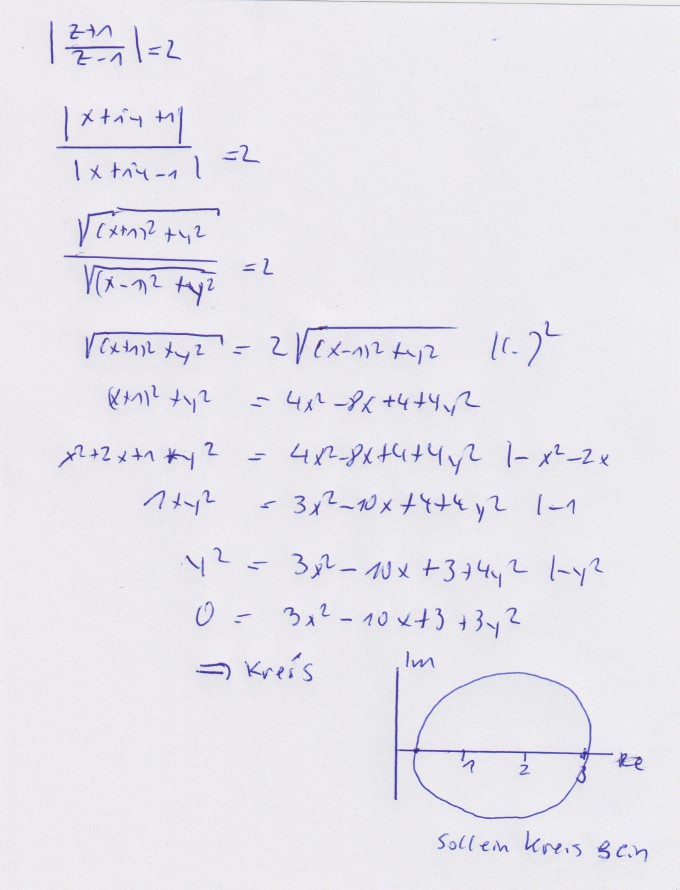 |(z+1)/(z-1)| = 2
|x+iy+1| / |x+iy-1| = 2
√((x+1)²+y²) / √((x-1)²+y²) = 2
√((x+1)²+y²) = 2√((x-1)²+y²) |(..)²
(x+1)²+y² = 4x²-8x+4+4y²
x²+2x+1+y² = 4x²-8x+4+4y² |-x²-2x
1+y² = 3x²-10x+4+4y² |-1
y² = 3x²-10x+3+4y² |-y²
0 = 3x²-10x+3+3y²
⇒ Kreis
Im
1 2 3 Re
soll ein Kreis sein